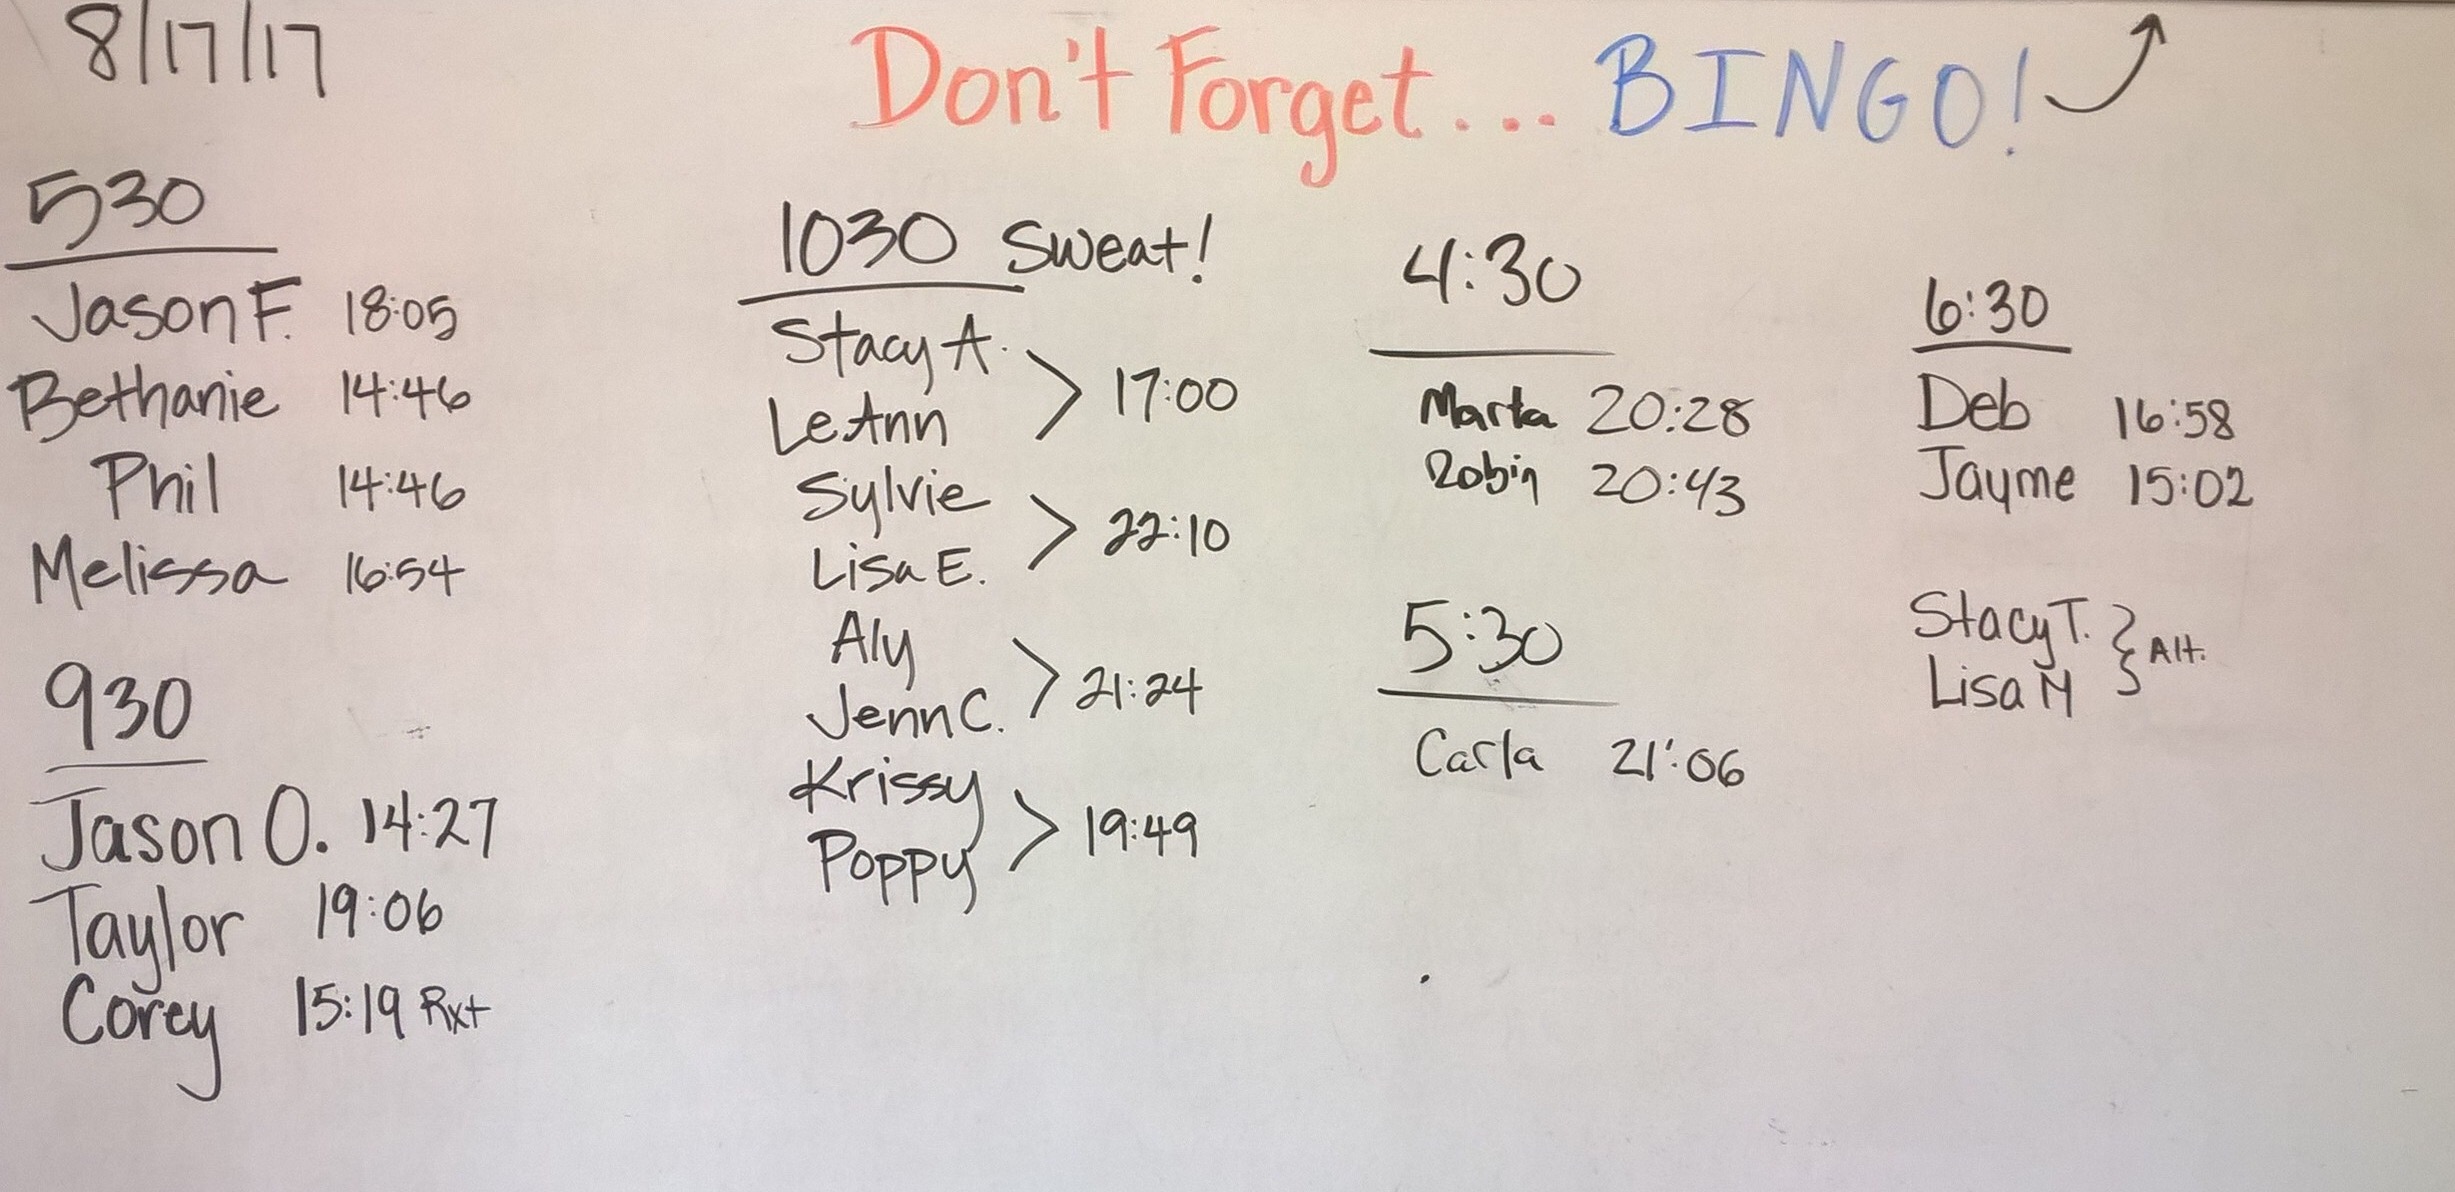 8/17/17
Don't Forget... BINGO!
530
Jason F. 18:05
Bethanie 14:46
Phil 14:46
Melissa 16:54
930
Jason O. 14:27
Taylor 19:06
Corey 15:19 Rx+
1030 Sweat!
Stacy A.
LeAnn
> 17:00
Sylvie
Lisa E.
> 22:10
Aly
Jenn C.
> 21:24
Krissy
Poppy
> 19:49
4:30
Marta 20:28
Robin 20:43
5:30
Carla 21:06
6:30
Deb 16:58
Jayme 15:02
Stacy T.
Lisa M
} Alt.